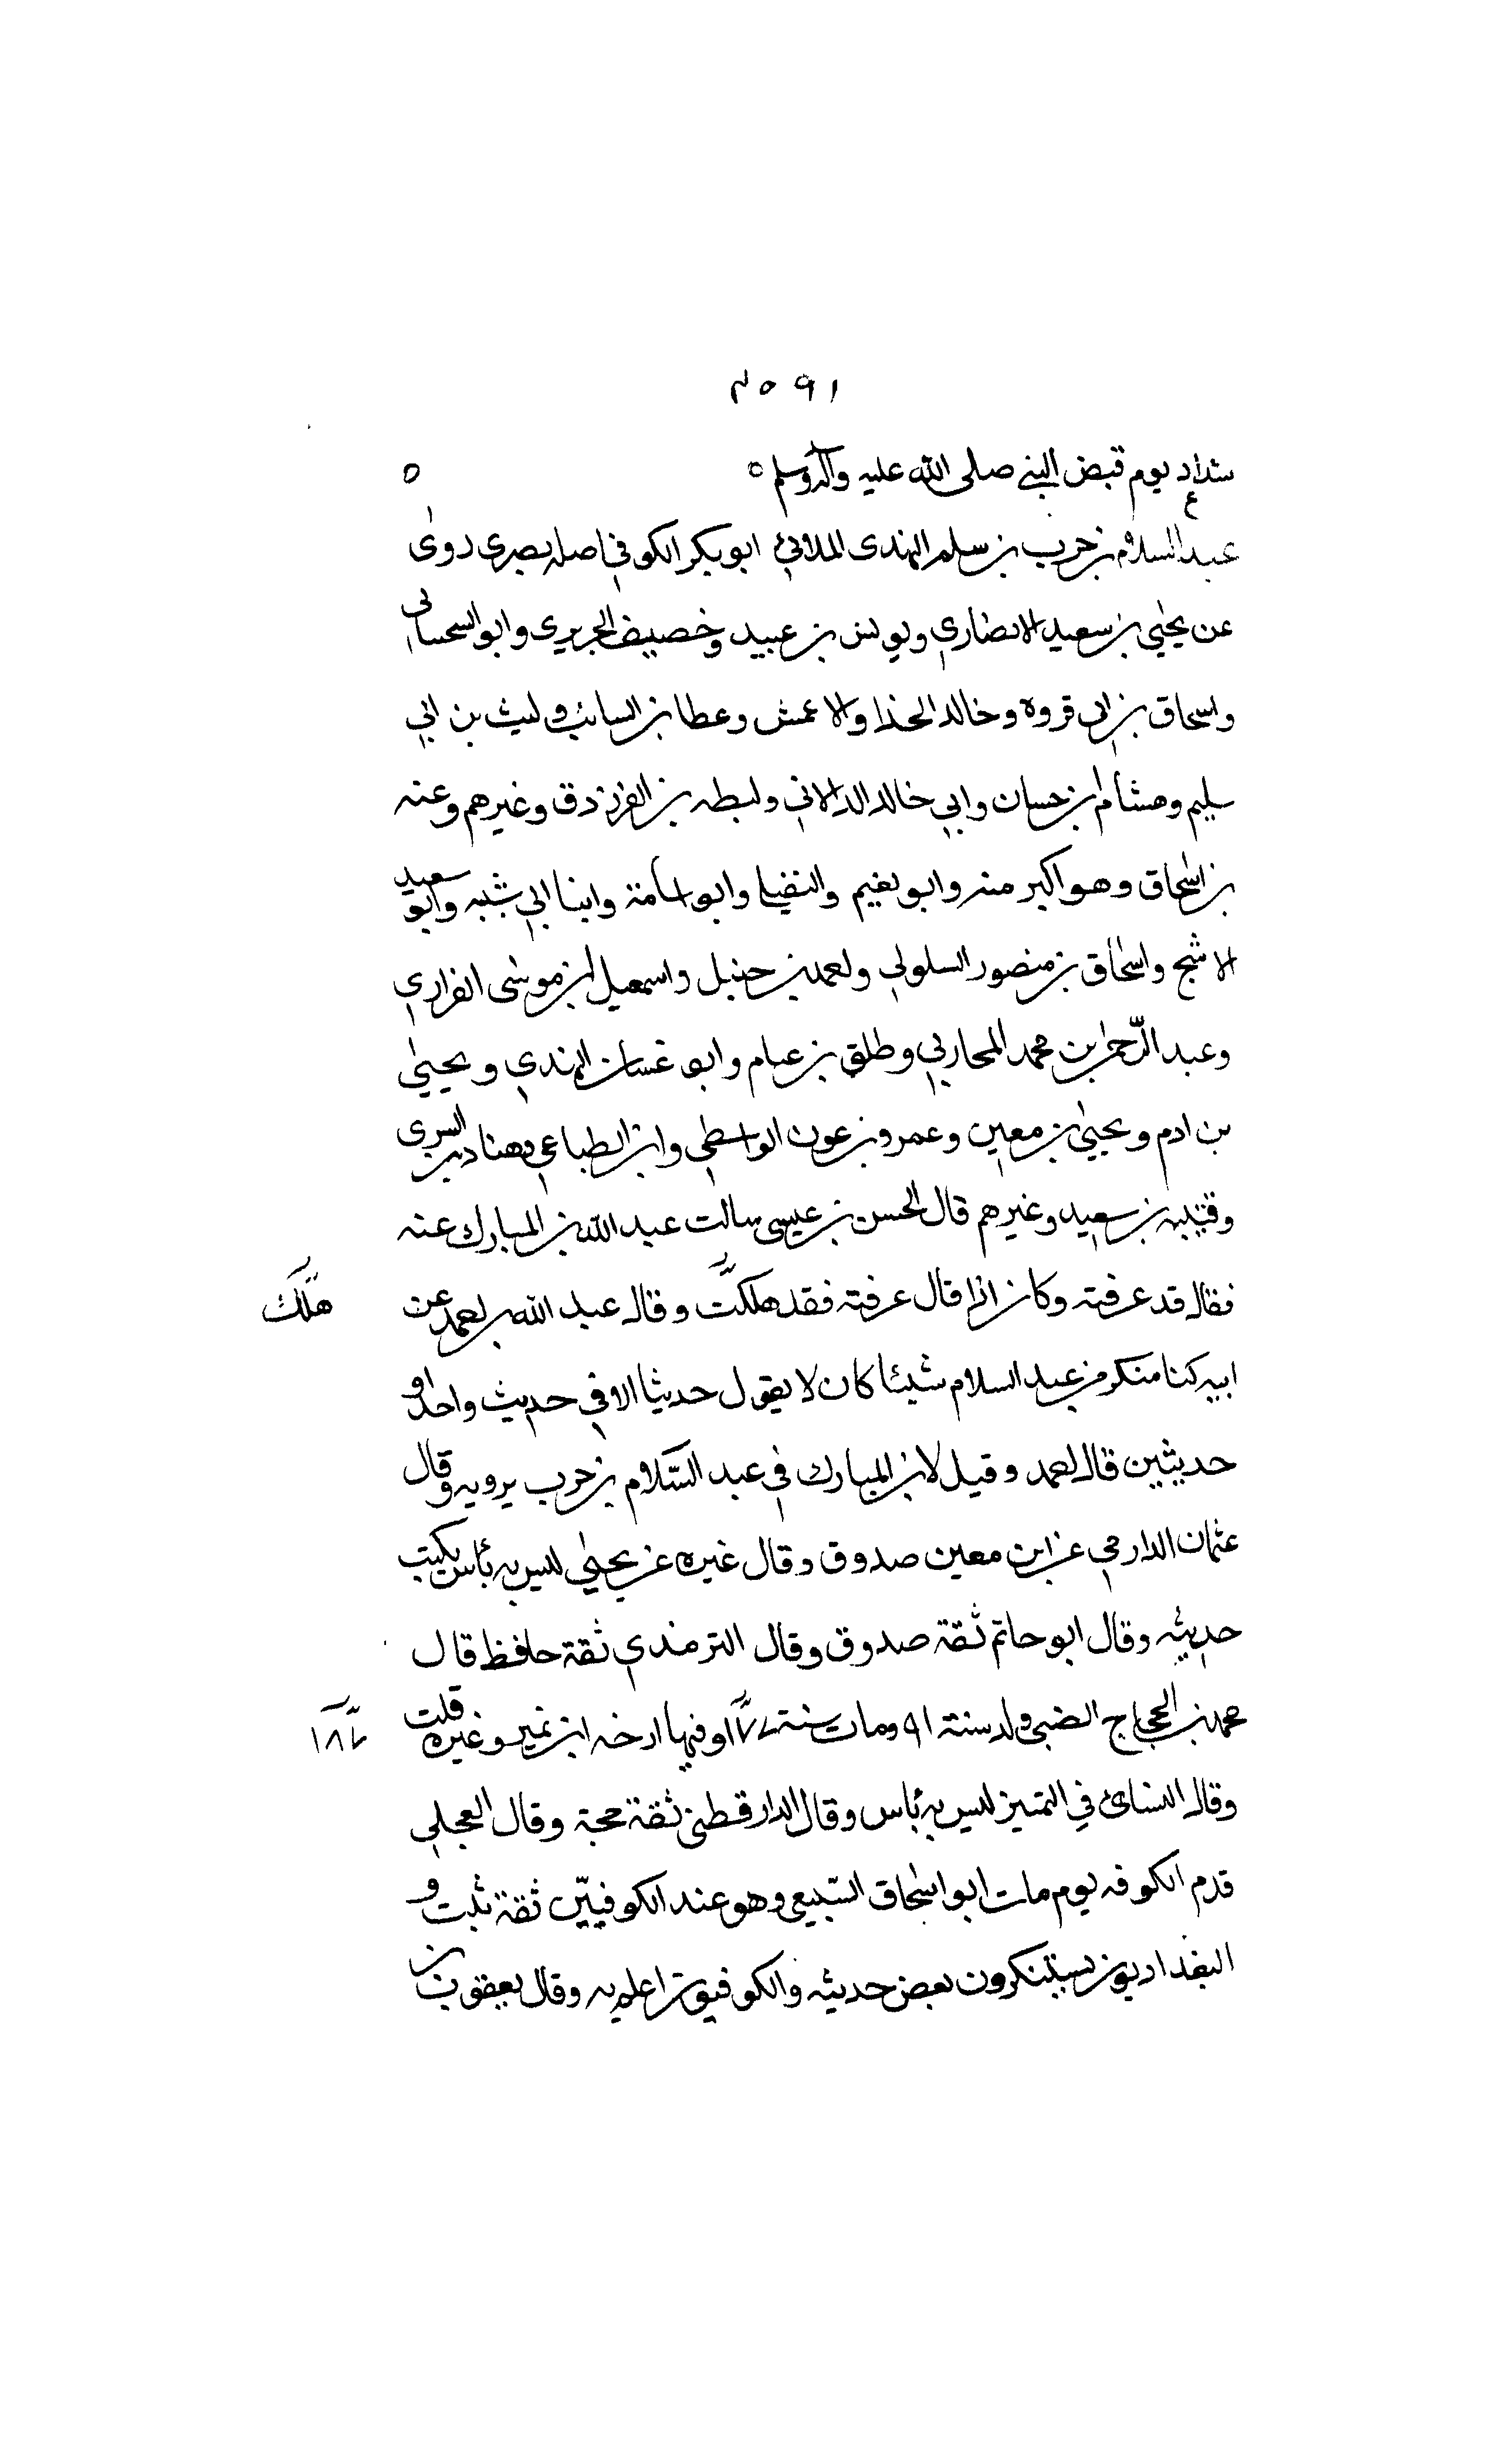 ١٩٥٢
شداد يوم قبض النبي صلى الله عليه وآله وسلم ه
ع
عبد السلام بن حرب بن سلم النهدى الملائي ابو بكر الكوفي اصله بصرى روى
عن يحيى بن سعيد الانصاري ويونس بن عبيد وخصيف الجزري وايوب السختيانى
واسحاق بن ابى فروه وخالد الحذا والاعمش وعطا بن السائب وليث بن ابي
سليم وهشام بن حسان وابي خالد الدالاني ولبطه بن الفرزدق وغيرهم وعنه
بن اسحاق وهو اكبر منه وابو نعيم والنفيلى وابو اسامة وابنا ابي شيبه وابو سعيد
الاشج واسحاق بن منصور السلولي واحمد بن حنبل واسمعيل بن موسى الفزاري
وعبد الرحمن بن محمد المحاربي وطلق بن غنام وابو غسان النهدي ويحيى
بن ادم ويحيى بن معين وعمرو بن عون الواسطي وابن الطباع وهناد بن السرى
وقتيبه بن سعيد وغيرهم قال الحسن بن عيسى سالت عبد الله بن المبارك عنه
فقال قد عرفته وكان اذا قال عرفته فقد هلكت وقال عبد الله بن احمد عن
هلك
ابيه كنا منكر من عبد السلام شيئا كان لا يقول حدثنا الا في حديث واحد او
حديثين قال احمد وقيل لابن المبارك في عبد السلام بن حرب يرويه وقال
عثمان الدارمي عن ابن معين صدوق وقال غيره عن يحيى ليس به بأس يكتب
حديثه وقال ابو حاتم ثقة صدوق وقال الترمذي ثقة حافظ قال
محمد بن الحجاج الضبي ولد سنة ٩١ ومات سنة ١٧٧ وفيها ارخه ابن نمير وغيره قلت
١٨٧
وقال النسائ في التمييز ليس به بأس وقال الدارقطني ثقة حجة وقال العجلي
قدم الكوفه يوم مات ابو اسحاق السبيعي وهو عند الكوفيين ثقة ثبت و
البغداديون يستنكرون بعض حديثه والكوفيون اعلم به وقال يعقوب بن